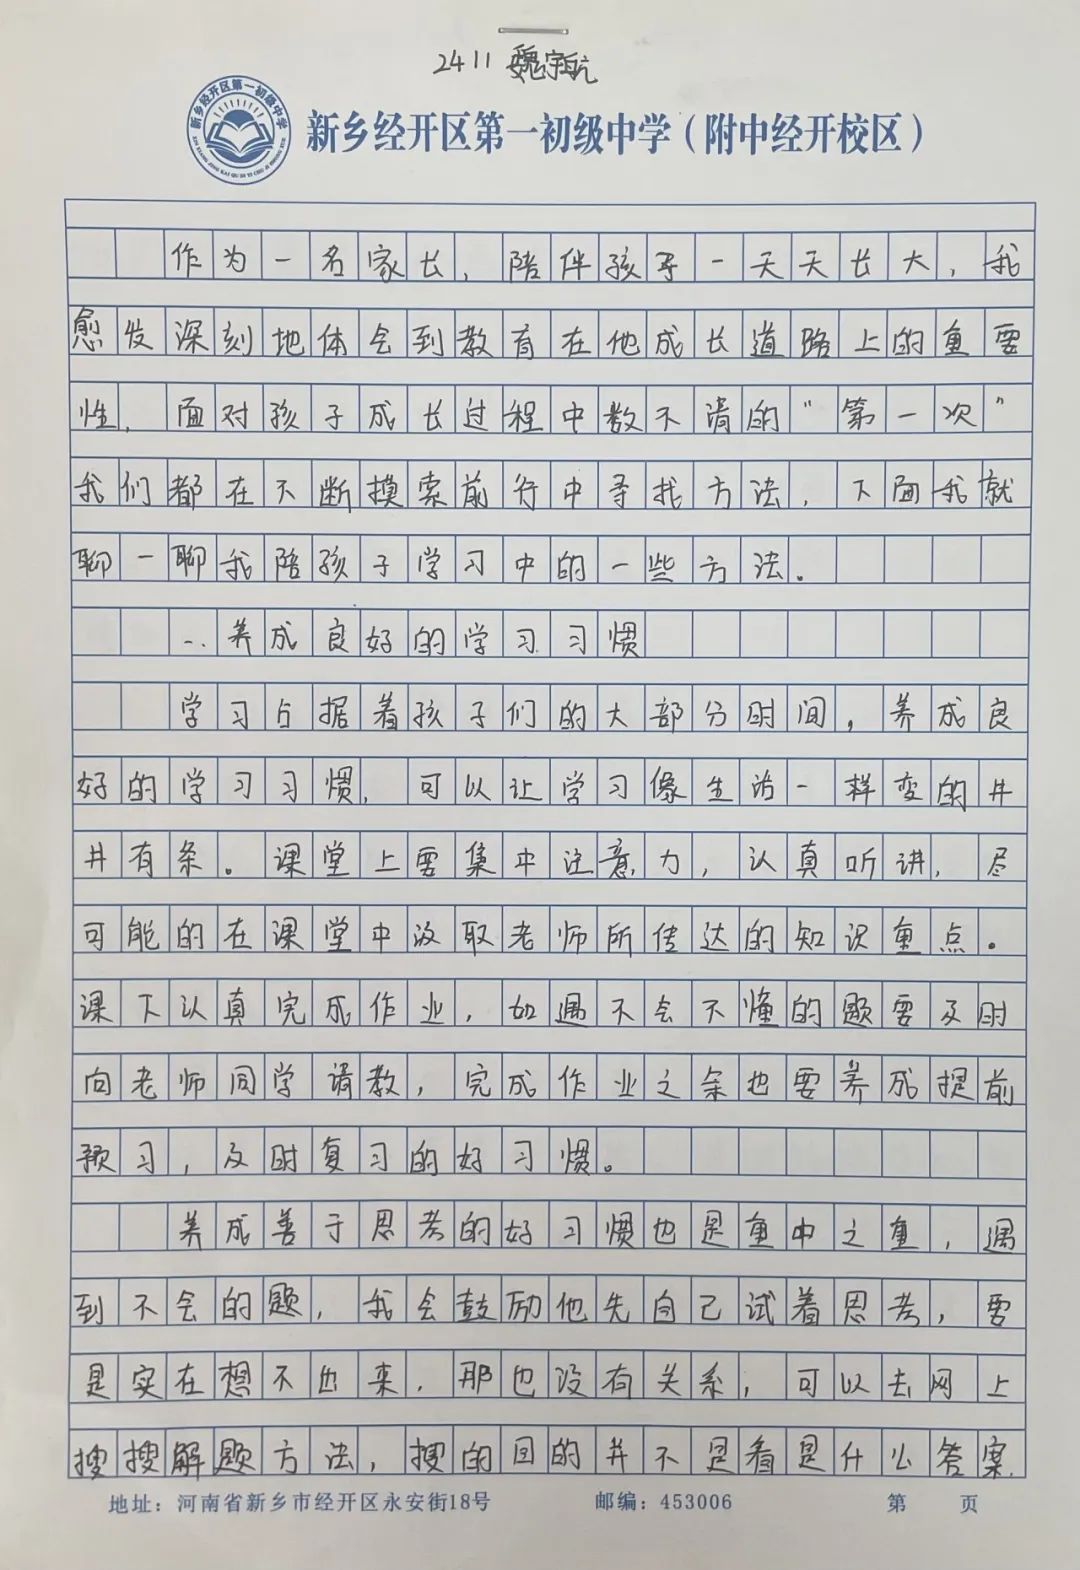 2411 魏宇航
新乡经开区第一初级中学
新乡经开区第一初级中学（附中经开校区）
作为一名家长，陪伴孩子一天天长大，我
愈发深刻地体会到教育在他成长道路上的重要
性，面对孩子成长过程中数不清的“第一次”
我们都在不断摸索前行中寻找方法，下面我就
聊一聊我陪孩子学习中的一些方法。
一、养成良好的学习习惯
学习占据着孩子们的大部分时间，养成良
好的学习习惯，可以让学习像生活一样变的井
井有条。课堂上要集中注意力，认真听讲，尽
可能的在课堂中汲取老师所传达的知识重点。
课下认真完成作业，如遇不会不懂的题要及时
向老师同学请教，完成作业之余也要养成提前
预习，及时复习的好习惯。
养成善于思考的好习惯也是重中之重，遇
到不会的题，我会鼓励他先自己试着思考，要
是实在想不出来，那也没有关系，可以去网上
搜搜解题方法，搜的目的并不是看是什么答案，
地址：河南省新乡市经开区永安街18号 邮编：453006 第 页